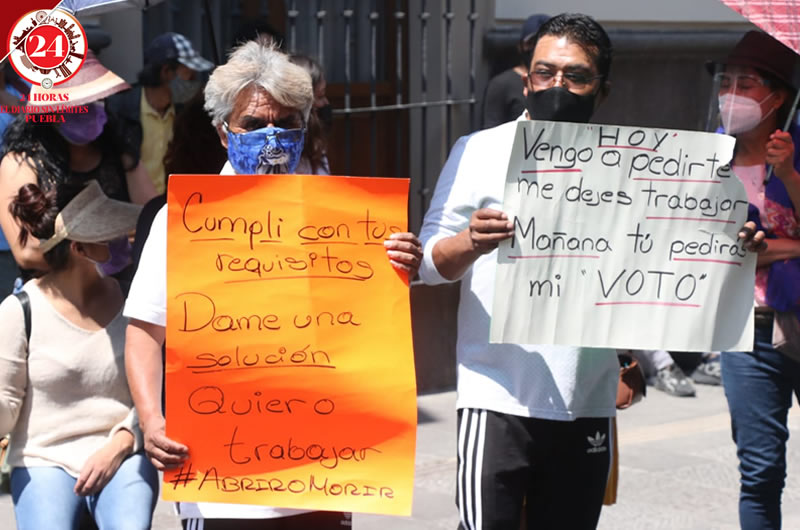 24
24 HORAS
EL DIARIO SIN LÍMITES
PUEBLA
Cumpli con tus
requisitos
Dame una
solución
Quiero
trabajar
#ABRIROMORIR
"HOY"
Vengo a pedirte
me dejes trabajar
Mañana tú pedirás
mi "VOTO"
adidas